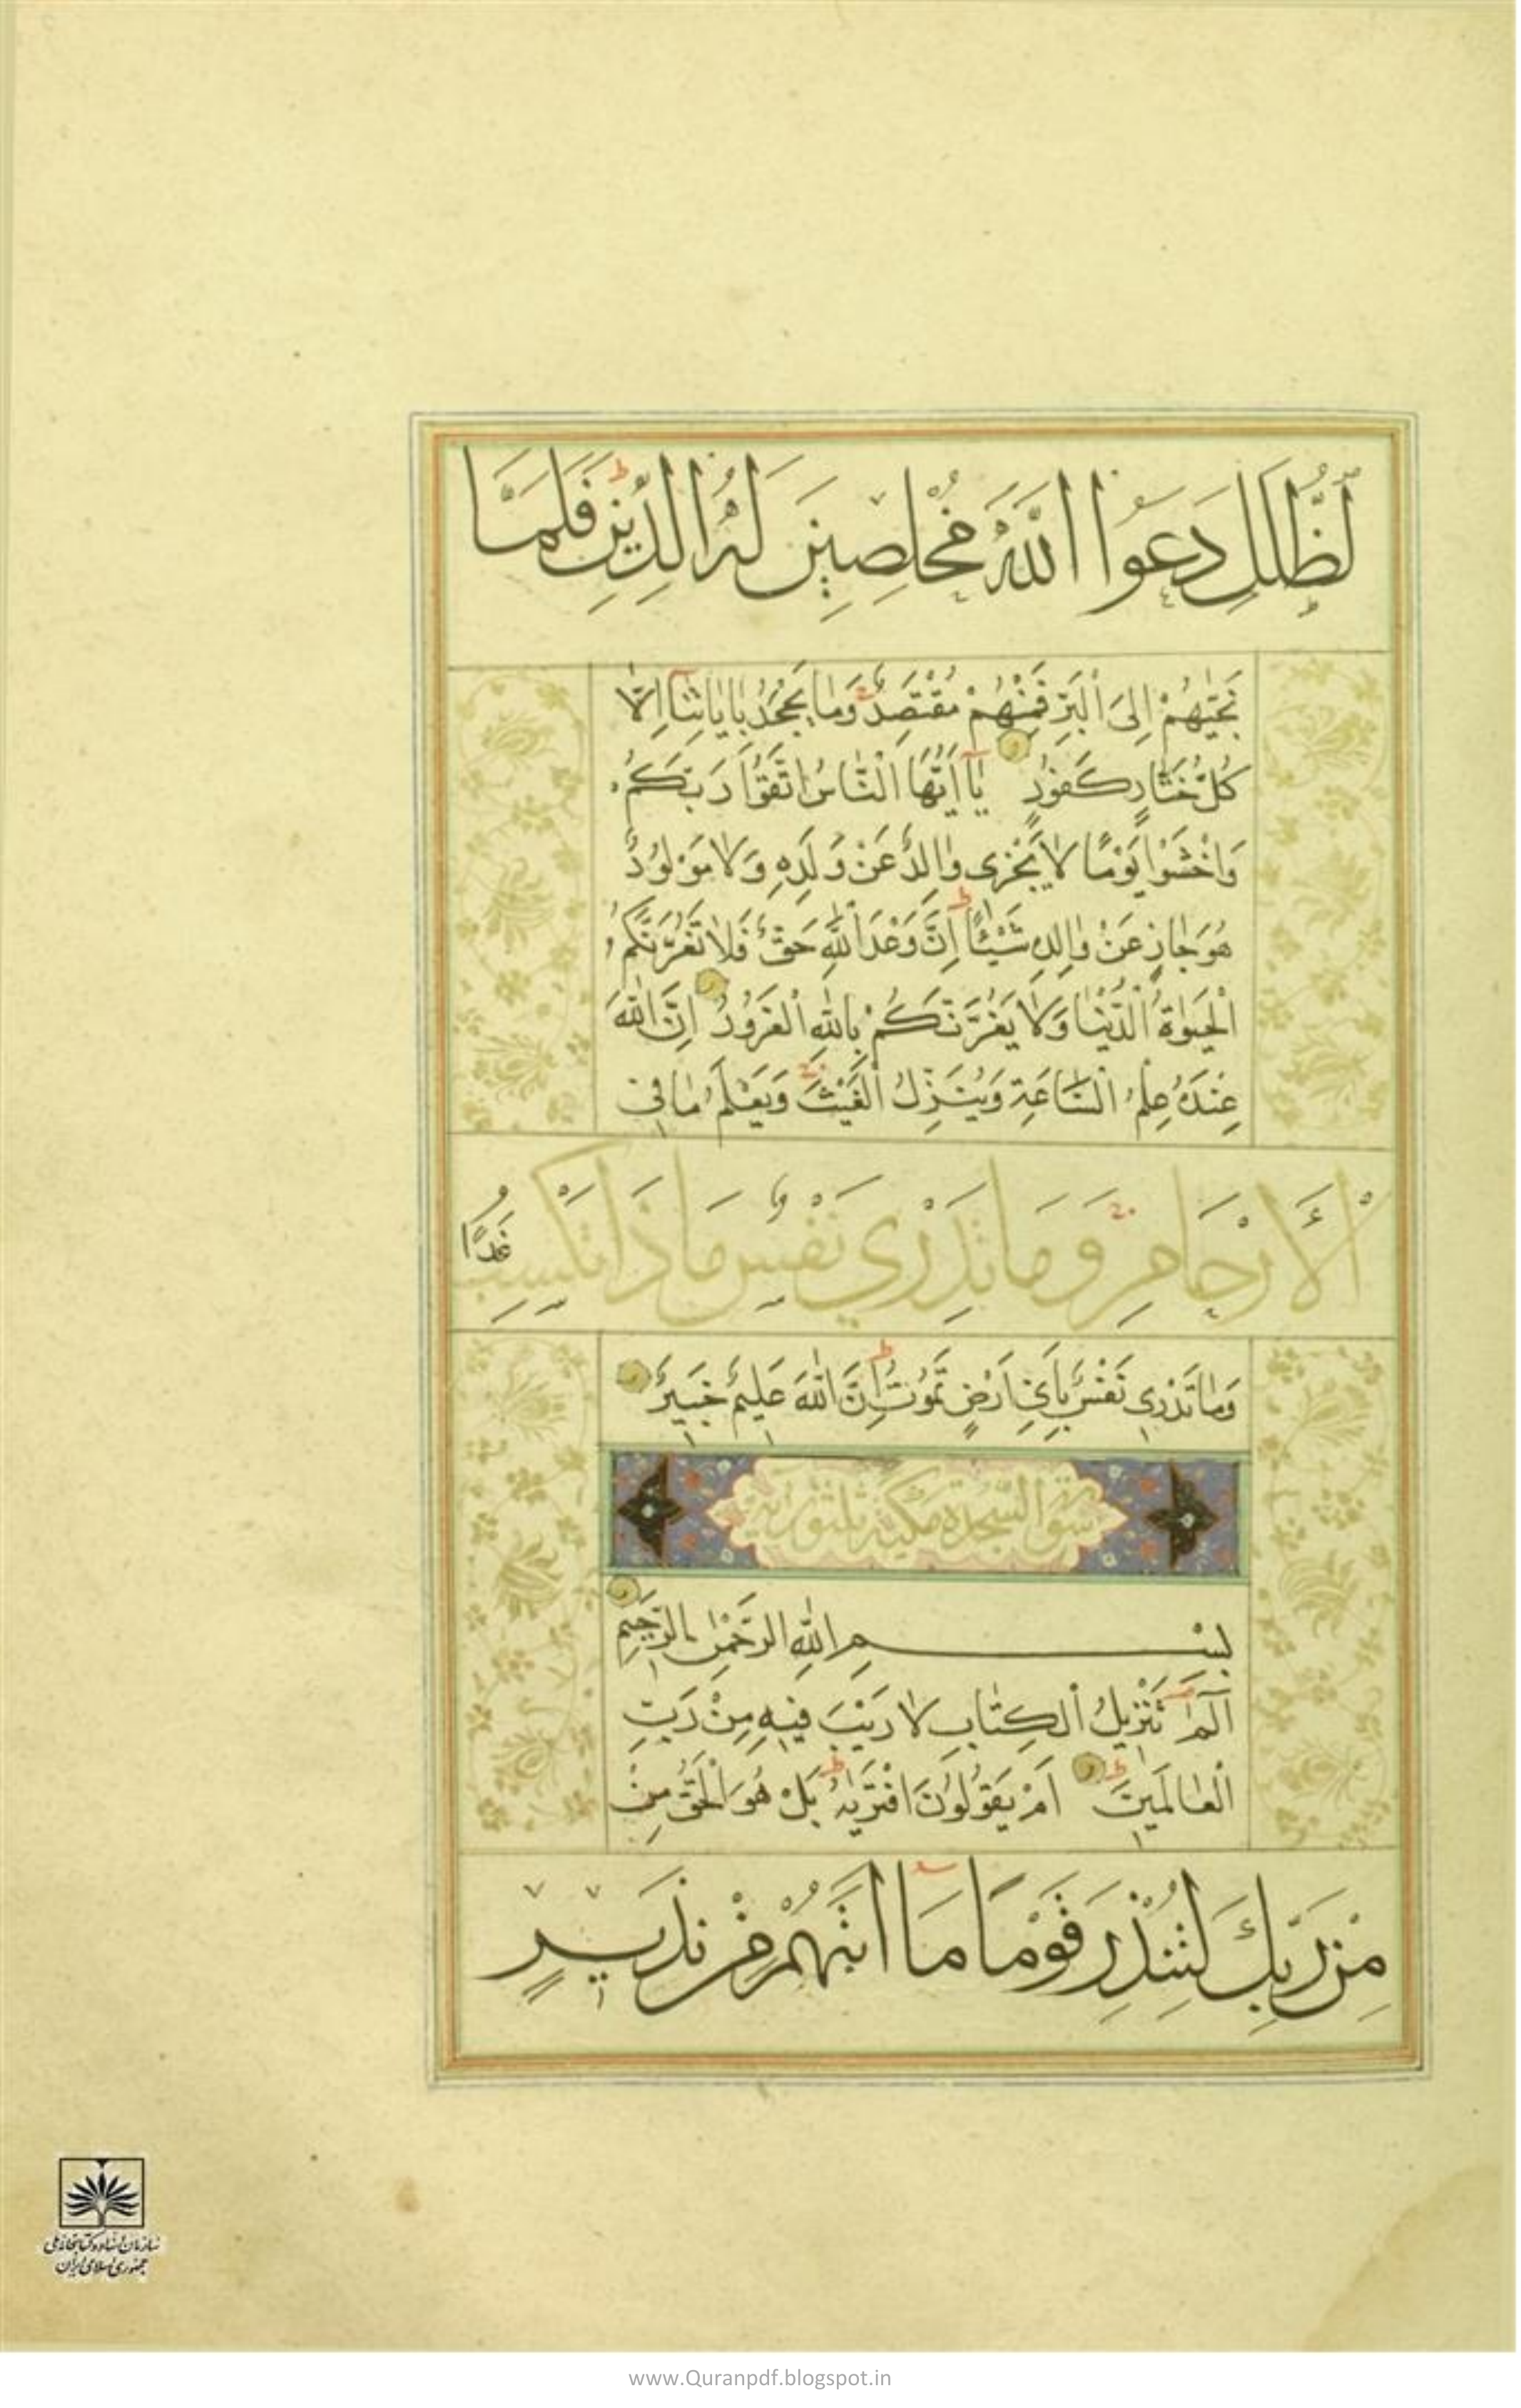 لظُّلَلِ دَعَوُا اللّٰهَ مُخْلِصِينَ لَهُ الدِّينَ فَلَمَّا
نَجّٰيهُمْ اِلَى الْبَرِّ فَمِنْهُمْ مُقْتَصِدٌ وَمٰا يَجْحَدُ بِاٰيٰاتِنٰا اِلّٰا
كُلُّ خَتّٰارٍ كَفُورٍ يٰا اَيُّهَا النّٰاسُ اتَّقُوا رَبَّكُمْ
وَاخْشَوْا يَوْمًا لٰا يَجْزِى وٰالِدٌ عَنْ وَلَدِهِ وَلٰا مَوْلُودٌ
هُوَ جٰازٍ عَنْ وٰالِدِهِ شَيْئًا اِنَّ وَعْدَ اللّٰهِ حَقٌّ فَلٰا تَغُرَّنَّكُمُ
الْحَيٰوةُ الدُّنْيٰا وَلٰا يَغُرَّنَّكُمْ بِاللّٰهِ الْغَرُورُ اِنَّ اللّٰهَ
عِنْدَهُ عِلْمُ السّٰاعَةِ وَيُنَزِّلُ الْغَيْثَ وَيَعْلَمُ مٰا فِى
الْاَرْحَامِ وَمَا تَدْرِي نَفْسٌ مَاذَا تَكْسِبُ غَدًا
وَمٰا تَدْرِى نَفْسٌ بِاَيِّ اَرْضٍ تَمُوتُ اِنَّ اللّٰهَ عَلِيمٌ خَبِيرٌ
سورة السجدة مكية ثلثون آية
بِسْمِ اللّٰهِ الرَّحْمٰنِ الرَّحِيمِ
الٓمٓ تَنْزِيلُ الْكِتٰابِ لٰا رَيْبَ فِيهِ مِنْ رَبِّ
الْعٰالَمِينَ اَمْ يَقُولُونَ افْتَرٰيهُ بَلْ هُوَ الْحَقُّ مِنْ
مِنْ رَبِّكَ لِتُنْذِرَ قَوْمًا مَا اَتٰيهُمْ مِنْ نَذِيرٍ
سازمان اسناد و کتابخانه ملی
جمهوری اسلامی ایران
www.Quranpdf.blogspot.in